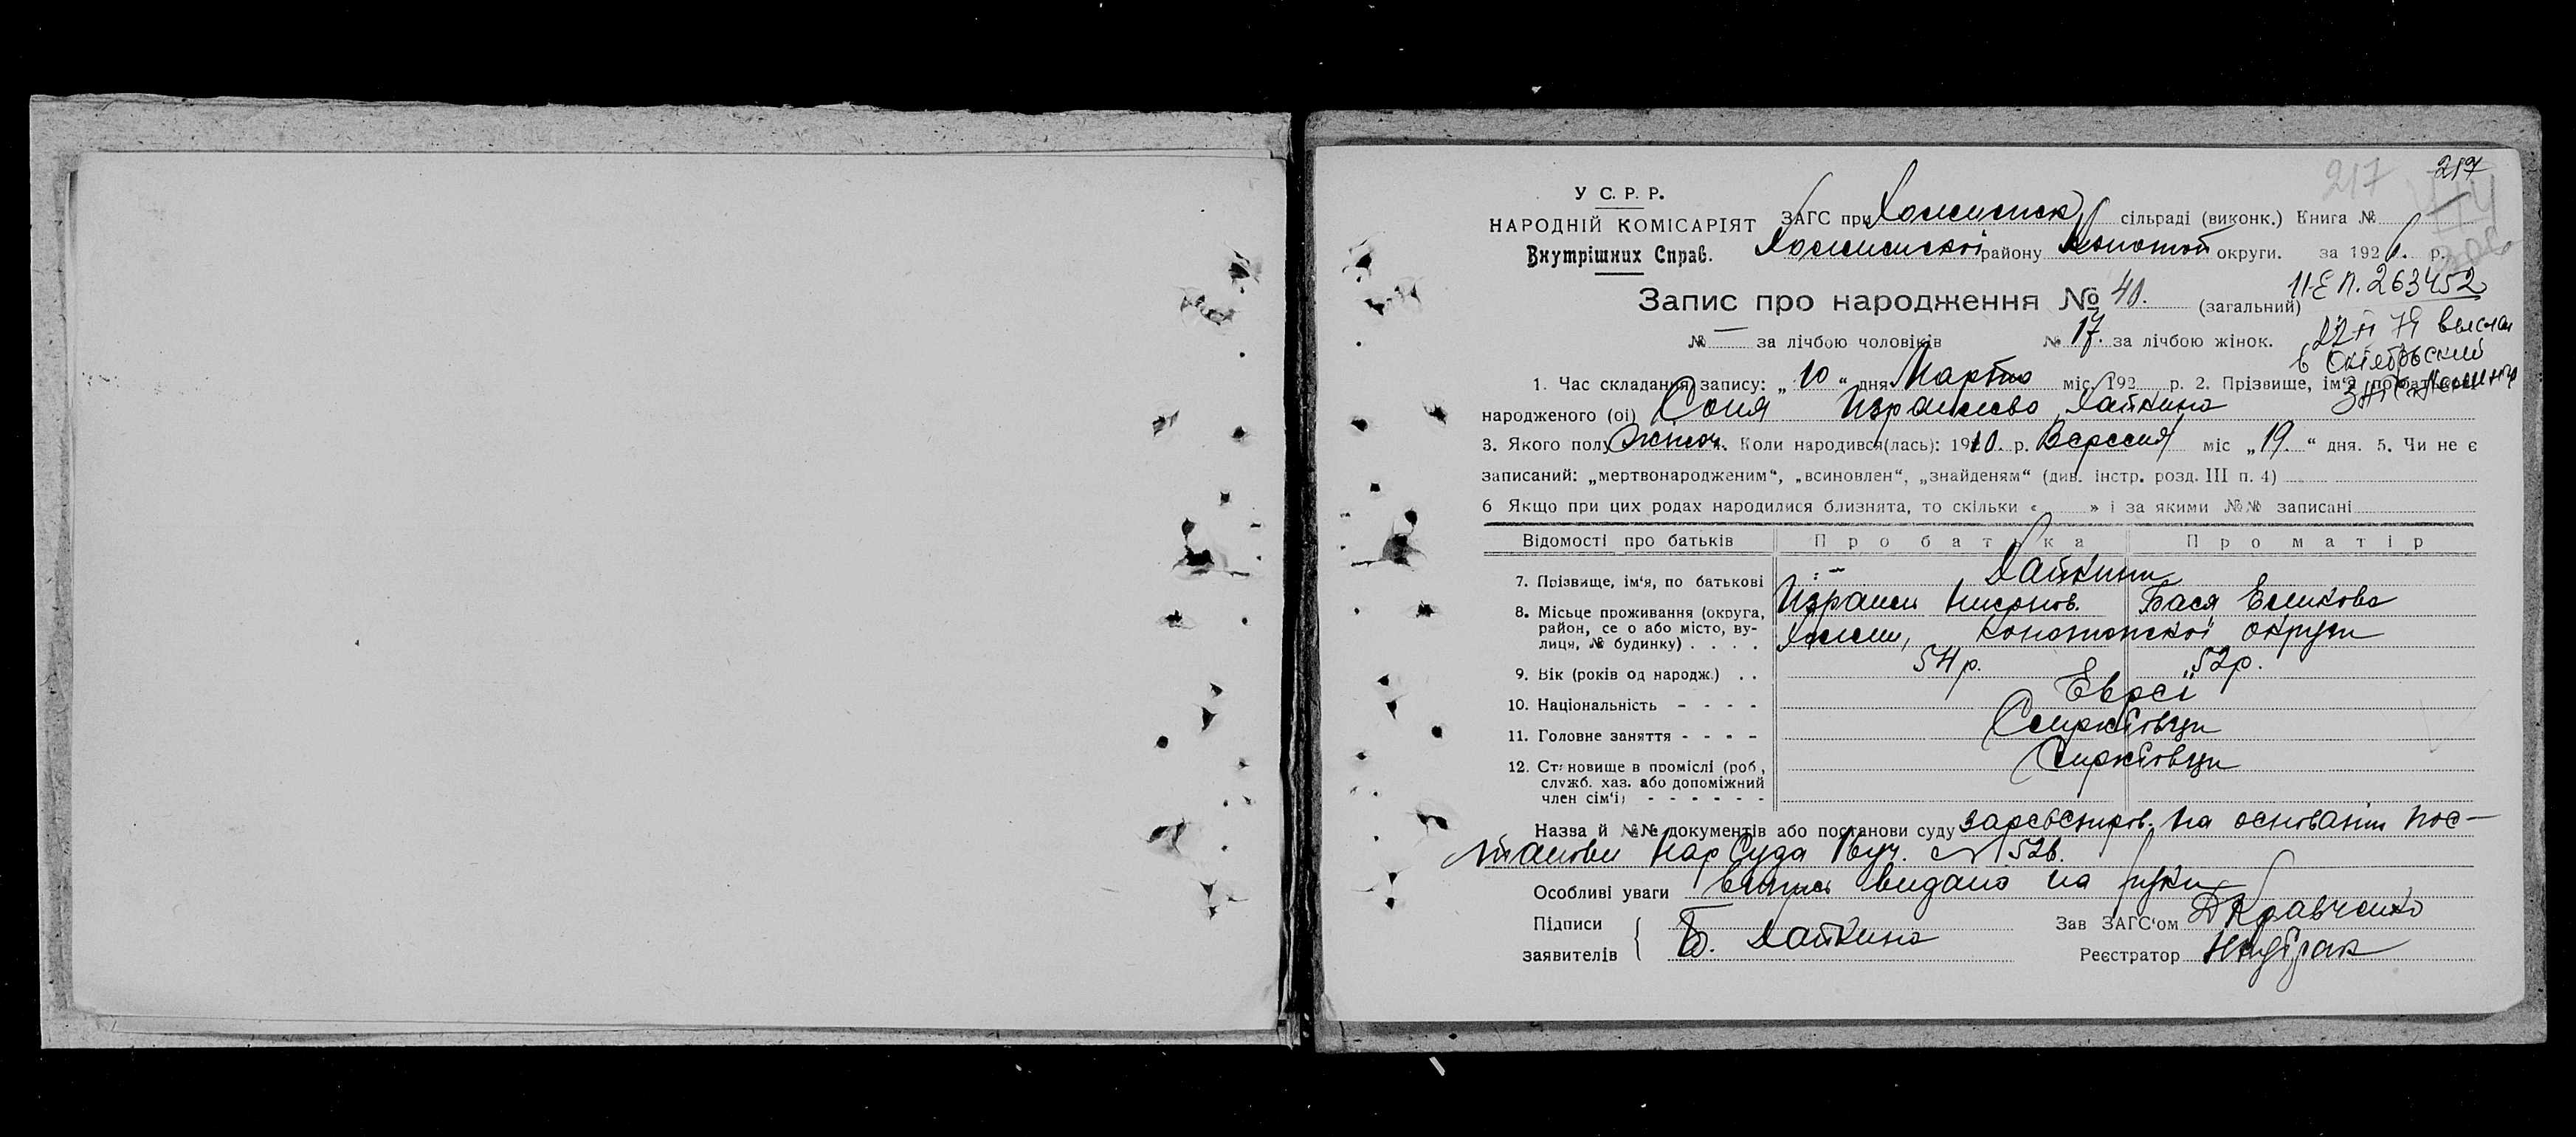 217
217
У С. Р. Р.
НАРОДНІЙ КОМІСАРІЯТ
Внутрішних Справ.
ЗАГС при сільраді (виконк.) Книга №
району Конотоп округи. за 1926 р.
11-Е П. 263452
Запис про народження № 40. (загальний)
№ — за лічбою чоловіків № 17. за лічбою жінок.
22 II 74 выслан
в Октябрьский
1. Час складання запису: „ 10 “ дня Марта міс. 192 р. 2. Прізвище, ім‘я, по батькові
народженого (ої) Соня Израилева Хайкина
3. Якого полу жіноч. Коли народився(лась): 1910 р. Вересня міс „ 19. “ дня. 5. Чи не є
записаний: „мертвонародженим“, „всиновлен“, „знайденям“ (див. інстр. розд. III п. 4)
6 Якщо при цих родах народилися близнята, то скільки « » і за якими №№ записані
Відомості про батьків Про батька Про матір
7. Прізвище, ім‘я, по батькові Хайкини
Израиль Нисонов. Бася
8. Місьце проживання (округа,
район, се о або місто, ву-
лиця, № будинку) . . . . Конотопскої округи
9. Вік (років од народж.) . . 54 р. 52 р.
10. Національність - - - - Евреї
11. Головне заняття - - - -
12. Становище в проміслі (роб.,
служб. хаз. або допоміжний
член сім‘ї) - - - - - -
Назва й №№ документів або постанови суду зареєстров. на основании пос-
танови НарСуда
Особливі уваги випись видано на руки
Підписи
заявителів Б. Хайкина
Зав ЗАГС‘ом Кравченко
Реєстратор